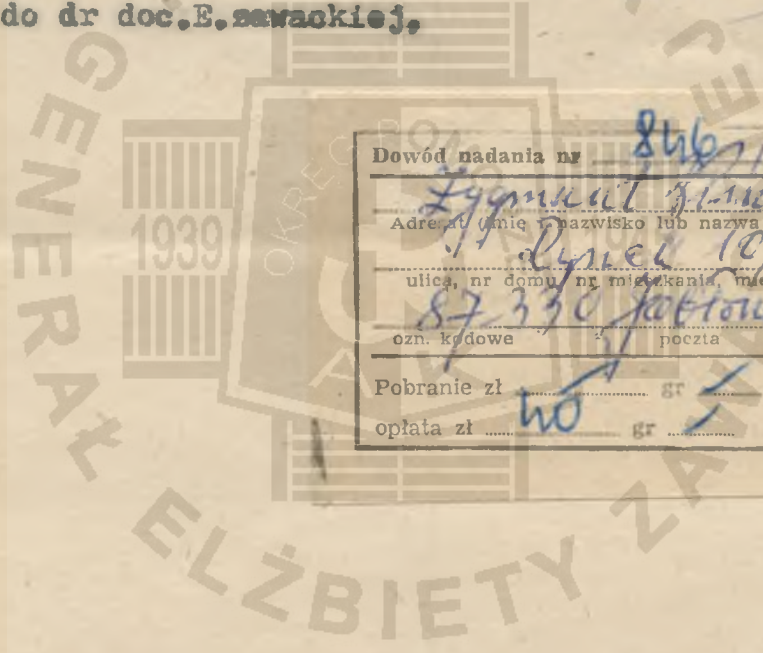 do dr doc.E.zawackiej.
Dowód nadania nr 846
Zygmunt
Adresat (imię i nazwisko lub nazwa
Rynek
ulica, nr domu, nr mieszkania,
87 330 Jabłon
ozn. kodowe poczta
Pobranie zł gr
opłata zł 40 gr
GENERAŁ ELŻBIETY ZAWA
1939
OKRĘG POMO
AK